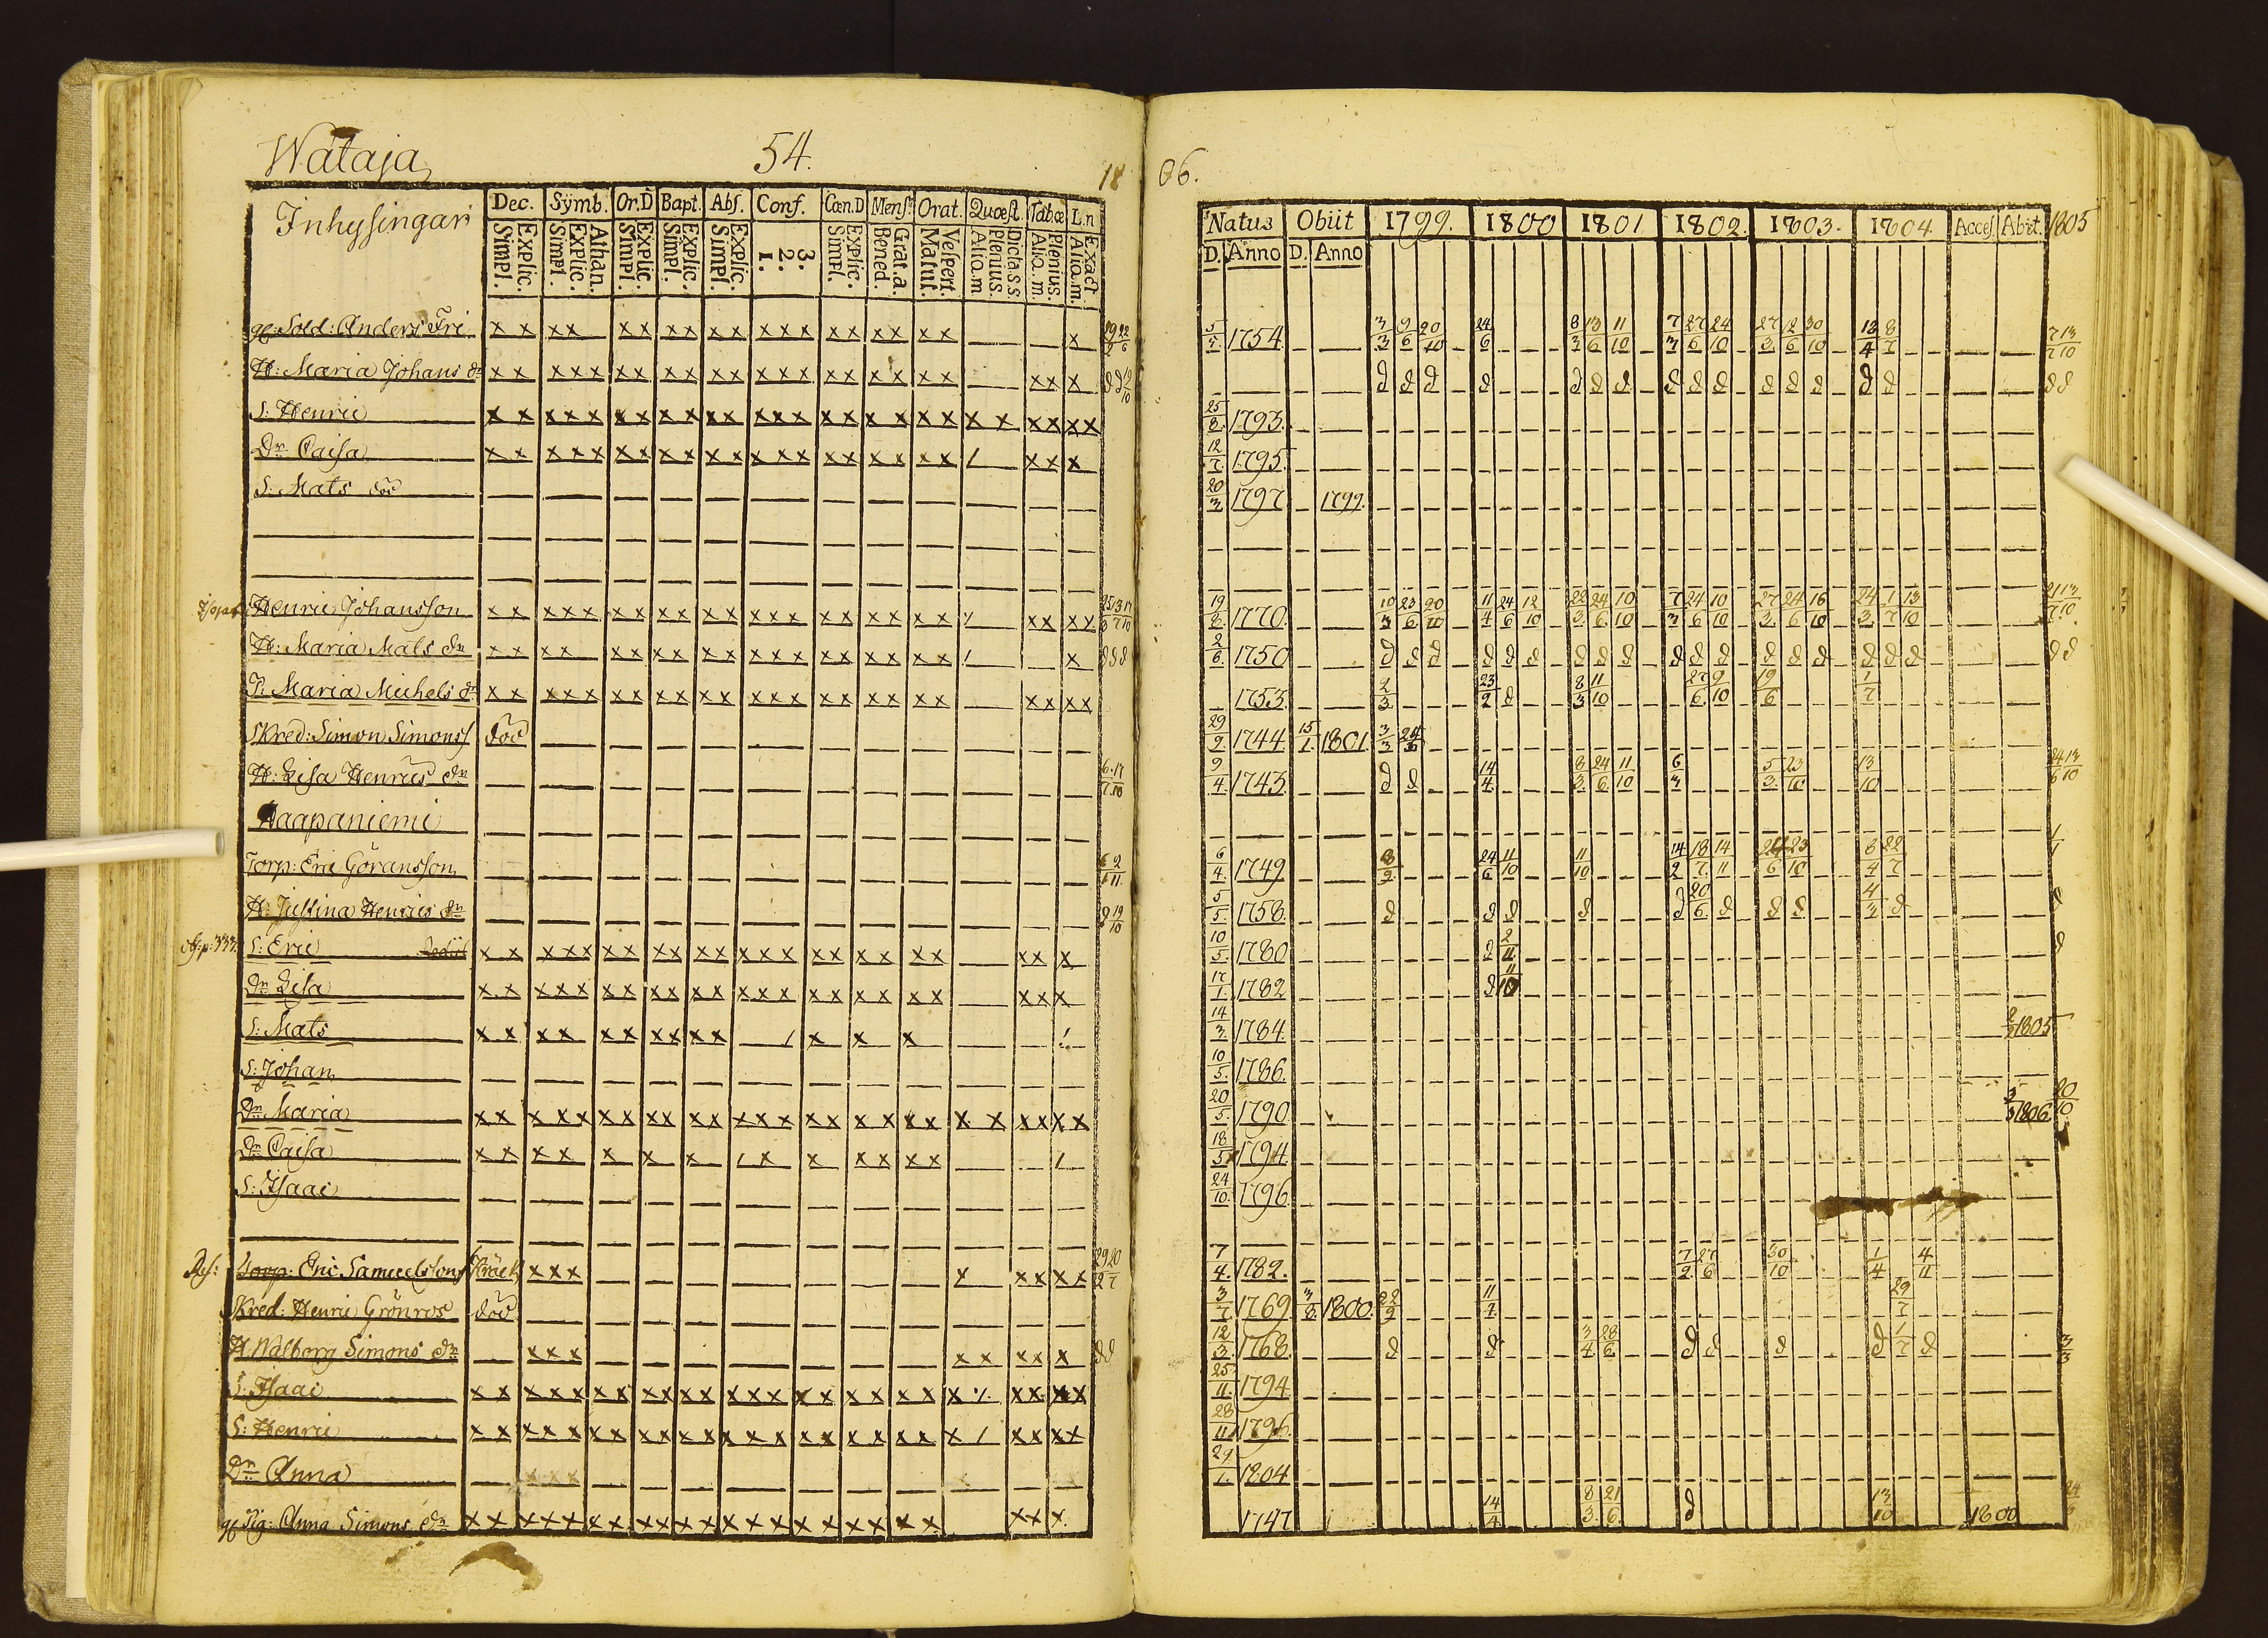 Wätaja
54.
18
06.
Inhysingar
Dec. Sÿmb. Or.D Bapt. Abs. Conf. Cœn.D Mens. Orat. Quœst. Tab.œ L.n
Simpl. Explic. Simpl. Explic. Athan. Simpl. Explic. Simpl. Explic. Simpl. Explic. 1. 2. 3. Simpl. Explic. Bened. Grat.a. Matut. Vespert. Alio.m plenius. Dicta.s.s Alio.m plenius. Alio.m. Exact
Natus Obiit 1799. 1800 1801 1802. 1803. 1804 Acces Abiit. 1805
D. Anno D. Anno
gl: Sold: Anders Fri x x x x x x x x x x x x x x x x x x x x
5/5 1754 3/3 9/6 20/10 24/6 8/3 13/6 11/10 7/3 27/6 24/10 27/3 12/6 30/10 13/4 8/7
H: Maria Johans dr x x x x x x x x x x x x x x x x x x x x x x x x
S: Henric x x x x x x x x x x x x x x x x x x x x x x x x x x
25/8 1793.
Dr Caisa x x x x x x x x x x x x x x x x x x x x / x x x
12/7 1795.
S: Mats död
20/3 1797 1799.
Henric Johansson x x x x x x x x x x x x x x x x x x x x x x x x
19/8 1770. 10/3 23/6 20/10 11/4 24/6 12/10 22/3 24/6 10/10 7/3 24/6 10/10 27/3 24/6 16/10 24/3 1/7 13/10
H: Maria Mats dr x x x x x x x x x x x x x x x x x x x / x
2/6 1750
P: Maria Michels dr x x x x x x x x x x x x x x x x x x x x x x x x
1753. 2/3 23/2 8/3 11/10 27/6 9/10 19/6 1/7
Skred: Simon Simonss död
29/9 1744 15/1 1801. 3/3
H: Lisa Henrics dr
9/4 1743 14/4 8/3 24/6 11/10 6/3 5/3 23/10 13/10
Haapaniemi
Torp: Eric Göransson
6/4 1749 24/6 11/10 11/10 14/2 18/7 14/11 23/10 8/4 22/7
H: Justina Henrics dr
5/5 1758. 20/6
S: Eric x x x x x x x x x x x x x x x x x x x x x x x
10/5 1780 2/11
Dr Lisa x x x x x x x x x x x x x x x x x x x x x x x
17/1 1782 11/10
S: Mats x x x x x x x x x x / x x x /
14/3 1784. 1805
S: Johan
10/5 1786.
Dr Maria x x x x x x x x x x x x x x x x x x x x x x x x x x
20/5 1790. 1806. 20/10
Dr Caisa x x x x x x x / x x x x x x /
18/5 1794
S: Isaac
24/10 1796.
Torp: Eric Samuelsson x x x x x x x x
7/4 1782. 7/2 27/6 30/10 1/4 4/11
Skred: Henric Grönros död
3/7 1769 3/8 1800. 22/9 11/4 29/7
H: Walborg Simons dr x x x x x x x x
12/3 1768. 3/4 28/6 1/7 3/3
S: Isaac x x x x x x x x x x x x x x x x x x x x x x x x x
25/11 1794
S: Henric x x x x x x x x x x x x x x x x x x x x x / x x x x
28/11 1796.
Dr Anna
29/1 1804
gl Pig: Anna Simons dr x x x x x x x x x x x x x x x x x x x x x x x
1747 14/4 8/3 21/6 13/10 1800